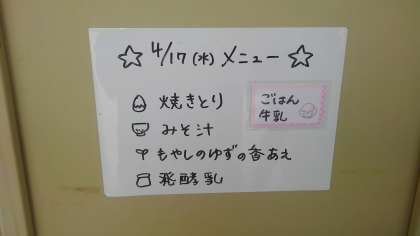 ☆ 4/17(水) メニュー ☆
焼きとり
みそ汁
もやしのゆずの香あえ
発酵乳
ごはん
牛乳